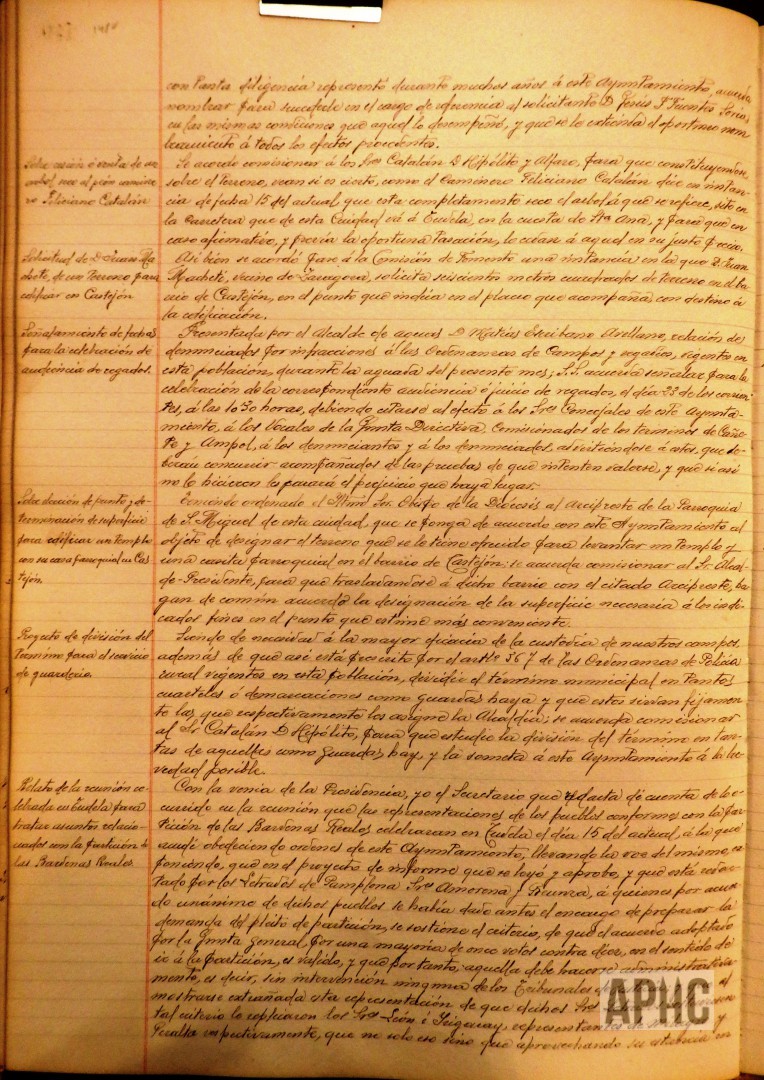 con tanta diligencia representó durante muchos años á este Ayuntamiento, acuerda
nombrar para sucederle en el cargo de referencia al solicitante D. Jesus P. Fuentes Soria,
en las mismas condiciones que aquel lo desempeñó, y que se le extienda el oportuno nom
bramiento á todos los efectos procedentes.
Sobre cesión ó venta de un
arbol seco al peón camine
ro Feliciano Catalán
Se acordó comisionar á los Sres Catalán D. Hipólito y Alfaro, para que constituyendose
sobre el terreno, vean si es cierto, como el Caminero Feliciano Catalán dice en instan
cia de fecha 15 del actual, que esta completamente seco el arbol á que se refiere, sito en
la carretera que de esta Ciudad vá á Tudela, en la cuesta de Sta Ana, y para que en
caso afirmativo, y previa la oportuna tasación, lo cedan á aquel en su justo precio.
Solicitud de D. Juan Ma
chete, de un terreno para
edificar en Castejón
Asi bien se acordó pase á la Comisión de Fomento una instancia en la que D. Juan
Machete, vecino de Zaragoza, solicita seiscientos metros cuadrados de terreno en el ba
rrio de Castejón, en el punto que indica en el plano que acompaña con destino á
la edificación.
Señalamiento de fechas
para la celebración de
audiencia de regados.
Presentada por el Alcalde de aguas D. Matías Escribano Arellano, relación de
denunciados por infracciones á las Ordenanzas de Campos y regadíos, vigente en
esta población, durante la aguada del presente mes; S.S. acuerda señalar para la
celebración de la correspondiente audiencia ó juicio de regados, el día 23 de los corrien
tes, á las 10 30 horas, debiendo citarse al efecto á los Sres Concejales de este Ayunta-
miento, á los Vocales de la Junta Directiva, Comisionados de los terminos de Cañe
te y Ampol, á los denunciantes y á los denunciados, advirtiéndose á estos, que de-
berán concurrir acompañados de las pruebas de que intenten valerse, y que si asi
no lo hicieren les parará el perjuicio que haya lugar.
Sobre elección de punto y de
terminación de superficie
para edificar un Templo
con su casa parroquial en Cas
tejón.
Teniendo ordenado el Iltmo Sr. Obispo de la Diócesis al Arcipreste de la Parroquia
de S. Miguel de esta ciudad, que se ponga de acuerdo con este Ayuntamiento al
objeto de designar el terreno que se le tiene ofrecido para levantar un templo y
una casita parroquial en el barrio de Castejón; se acuerda comisionar al Sr. Alcal
de-Presidente, para que trasladandose á dicho barrio con el citado Arcipreste, ha
gan de común acuerdo la designación de la superficie necesaria á los indi
cados fines en el punto que estime más conveniente.
Proyecto de división del
termino para el servicio
de guardería.
Siendo de necesidad á la mayor eficacia de la custodia de nuestros campos,
además de que asi está prescrito por el artº 367 de las Ordenanzas de Policía
rural vigentes en esta población, dividir el término municipal en tantos
cuarteles ó demarcaciones como guardas haya y que estos sirvan fijamen
te las que respectivamente les asigne la Alcaldía; se acuerda comisionar
al Sr. Catalán D. Hipólito, para que estudie la división del término en tan-
tas de aquellas como guardas hay, y la someta á este Ayuntamiento á la bre
vedad posible.
Relato de la reunión ce
lebrada en Tudela para
tratar asuntos relacio-
nados con la partición de
las Bardenas Reales.
Con la venia de la Presidencia, yo el Secretario que redacta dí cuenta de lo o
currido en la reunión que las representaciones de los pueblos conformes con la par
tición de las Bardenas Reales celebraran en Tudela el día 15 del actual, á la que
acudí obedeciendo ordenes de este Ayuntamiento, llevando la voz del mismo, ex
poniendo, que en el proyecto de informe que se leyó y aprobó, y que está redac-
tado por los Letrados de Pamplona Sres Amorena y á quienes por acuer
do unánime de dichos pueblos se había dado antes el encargo de preparar la
demanda del pleito de partición, se sostiene el criterio, de que el acuerdo adoptado
por la Junta General, por una mayoría de once votos contra diez, en el sentido de
ir á la partición, es valido, y que por tanto, aquella debe hacerse administrativa
mente, es decir, sin intervención ninguna de los Tribunales
mostrarse extrañada esta representación de que dichos Sres
tal criterio le replicaron los Sres León é representantes de
Peralta respectivamente, que no solo eso sino que aprovechando su estancia en
APHC